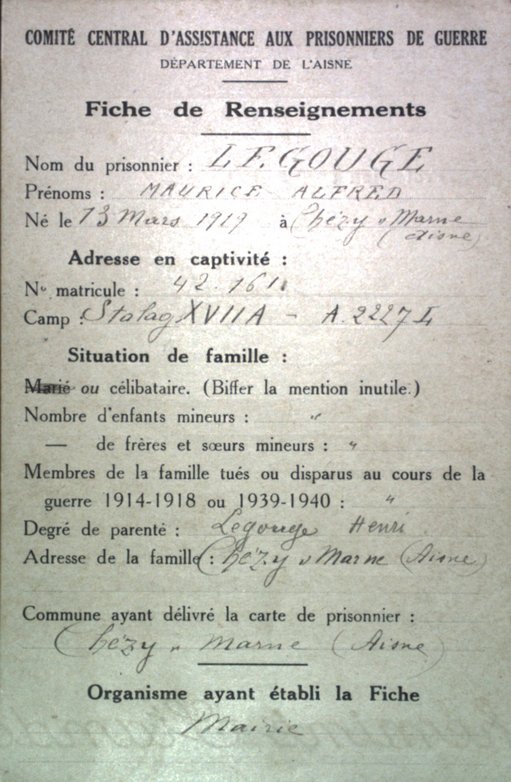 COMITÉ CENTRAL D'ASSISTANCE AUX PRISONNIERS DE GUERRE
DÉPARTEMENT DE L'AISNE
Fiche de Renseignements
Nom du prisonnier : LEGOUGE
Prénoms : MAURICE ALFRED
Né le 13 Mars 1919 à Chézy s Marne
(Aisne)
Adresse en captivité :
No matricule : 42.161
Camp : Stalag XVII A - A. 2227 I
Situation de famille :
Marié ou célibataire. (Biffer la mention inutile.)
Nombre d'enfants mineurs : "
— de frères et sœurs mineurs : "
Membres de la famille tués ou disparus au cours de la
guerre 1914-1918 ou 1939-1940 : "
Degré de parenté : Legouge Henri
Adresse de la famille : Chézy s Marne (Aisne)
Commune ayant délivré la carte de prisonnier :
Chézy s Marne (Aisne)
Organisme ayant établi la Fiche
Mairie